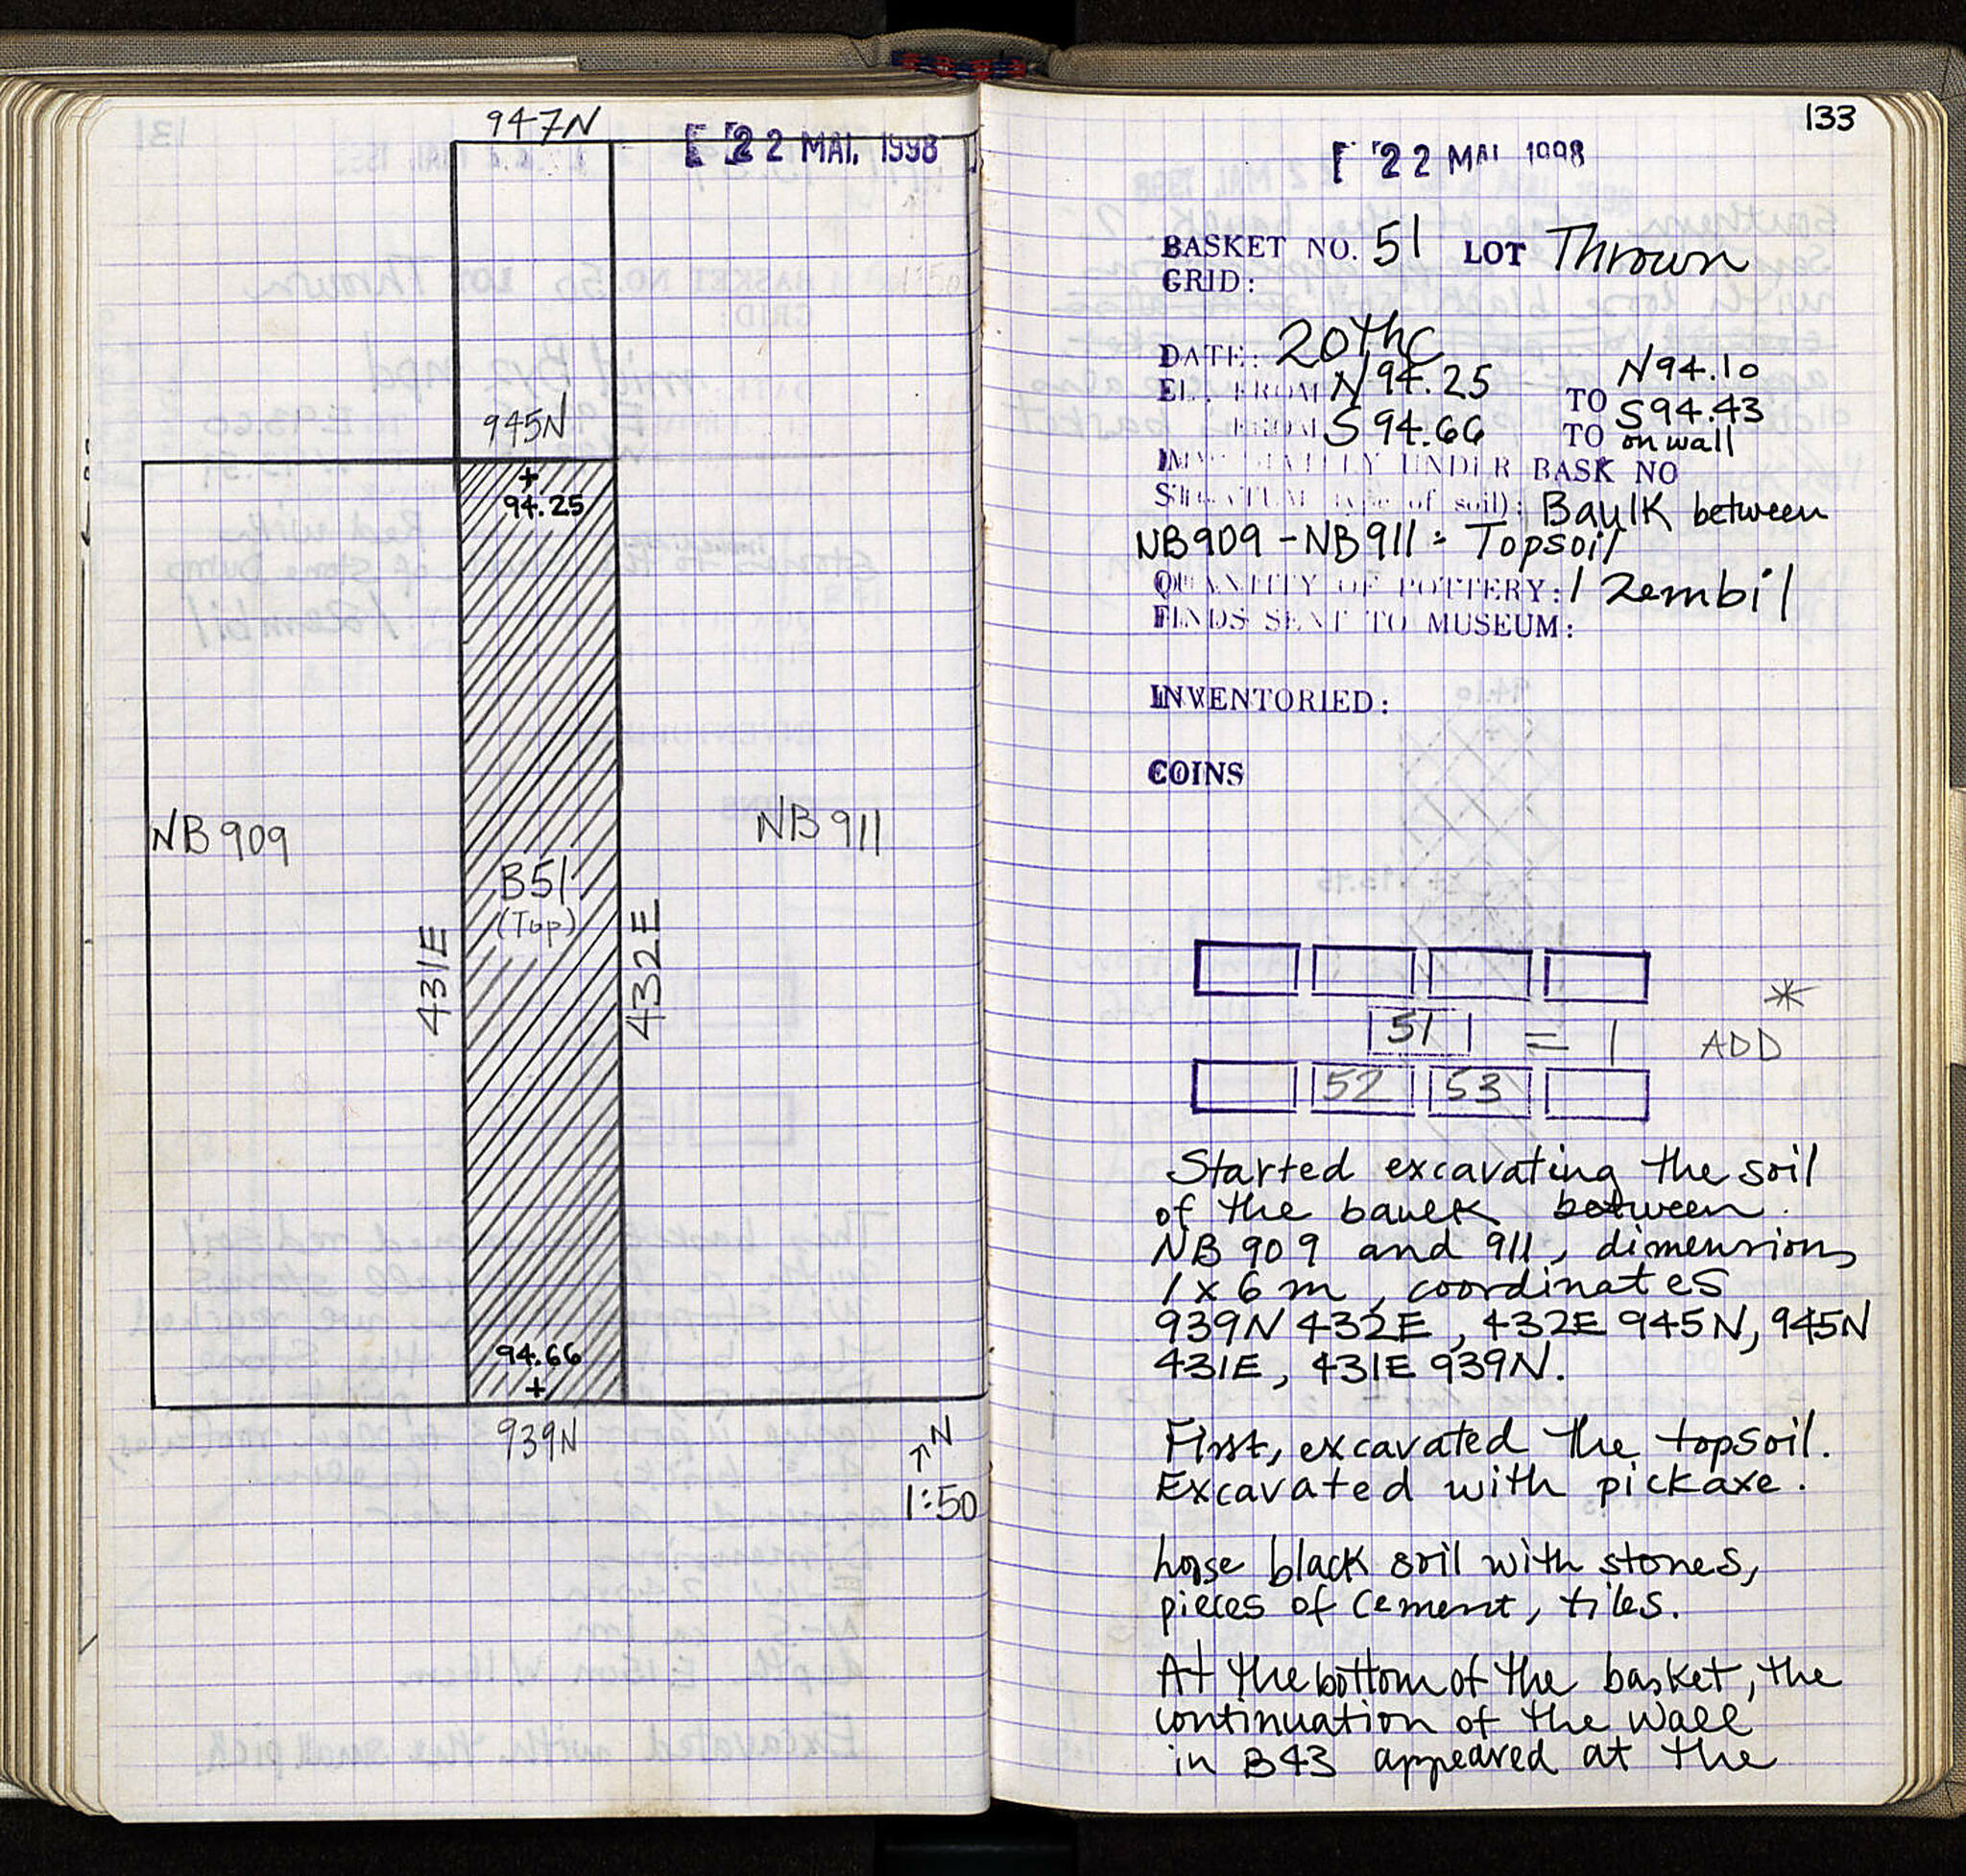 947N
22 MAI 1998
945N
+
94.25
NB 909
NB 911
B51
(Top)
431E
432E
94.66
+
939N
N
1:50
133
22 MAI 1998
BASKET NO. 51 LOT Thrown
GRID:
DATE: 20thc
EL. FROM N 94.25 TO N94.10
FROM S 94.66 TO S94.43
TO on wall
IMMEDIATELY UNDER BASK NO
STRATUM (type of soil): Baulk between
NB909-NB911 = Topsoil
QUANTITY OF POTTERY: 1 zembil
FINDS SENT TO MUSEUM:
INVENTORIED:
COINS
51 = 1 ADD *
52 53
Started excavating the soil
of the baulk between
NB 909 and 911, dimensions
1 x 6 m, coordinates
939N 432E, 432E 945N, 945N
431E, 431E 939N.
First, excavated the topsoil.
Excavated with pickaxe.
loose black soil with stones,
pieces of cement, tiles.
At the bottom of the basket, the
continuation of the wall
in B43 appeared at the